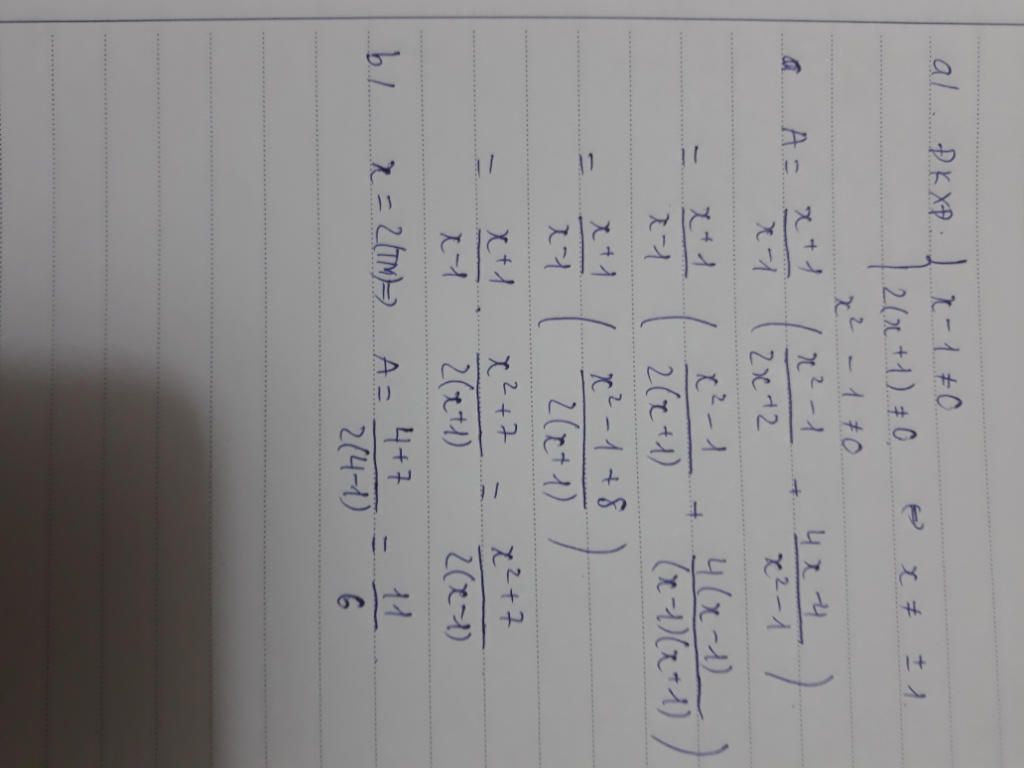 a/. ĐKXĐ. { x - 1 ≠ 0
2(x+1) ≠ 0 ⇔ x ≠ ± 1
x² - 1 ≠ 0
A = \frac{x+1}{x-1} ( \frac{x²-1}{2x+2} + \frac{4x-4}{x²-1} )
= \frac{x+1}{x-1} ( \frac{x²-1}{2(x+1)} + \frac{4(x-1)}{(x-1)(x+1)} )
= \frac{x+1}{x-1} ( \frac{x²-1+8}{2(x+1)} )
= \frac{x+1}{x-1} . \frac{x²+7}{2(x+1)} = \frac{x²+7}{2(x-1)}
b/ x = 2(TM) => A = \frac{4+7}{2(4-1)} = \frac{11}{6}.